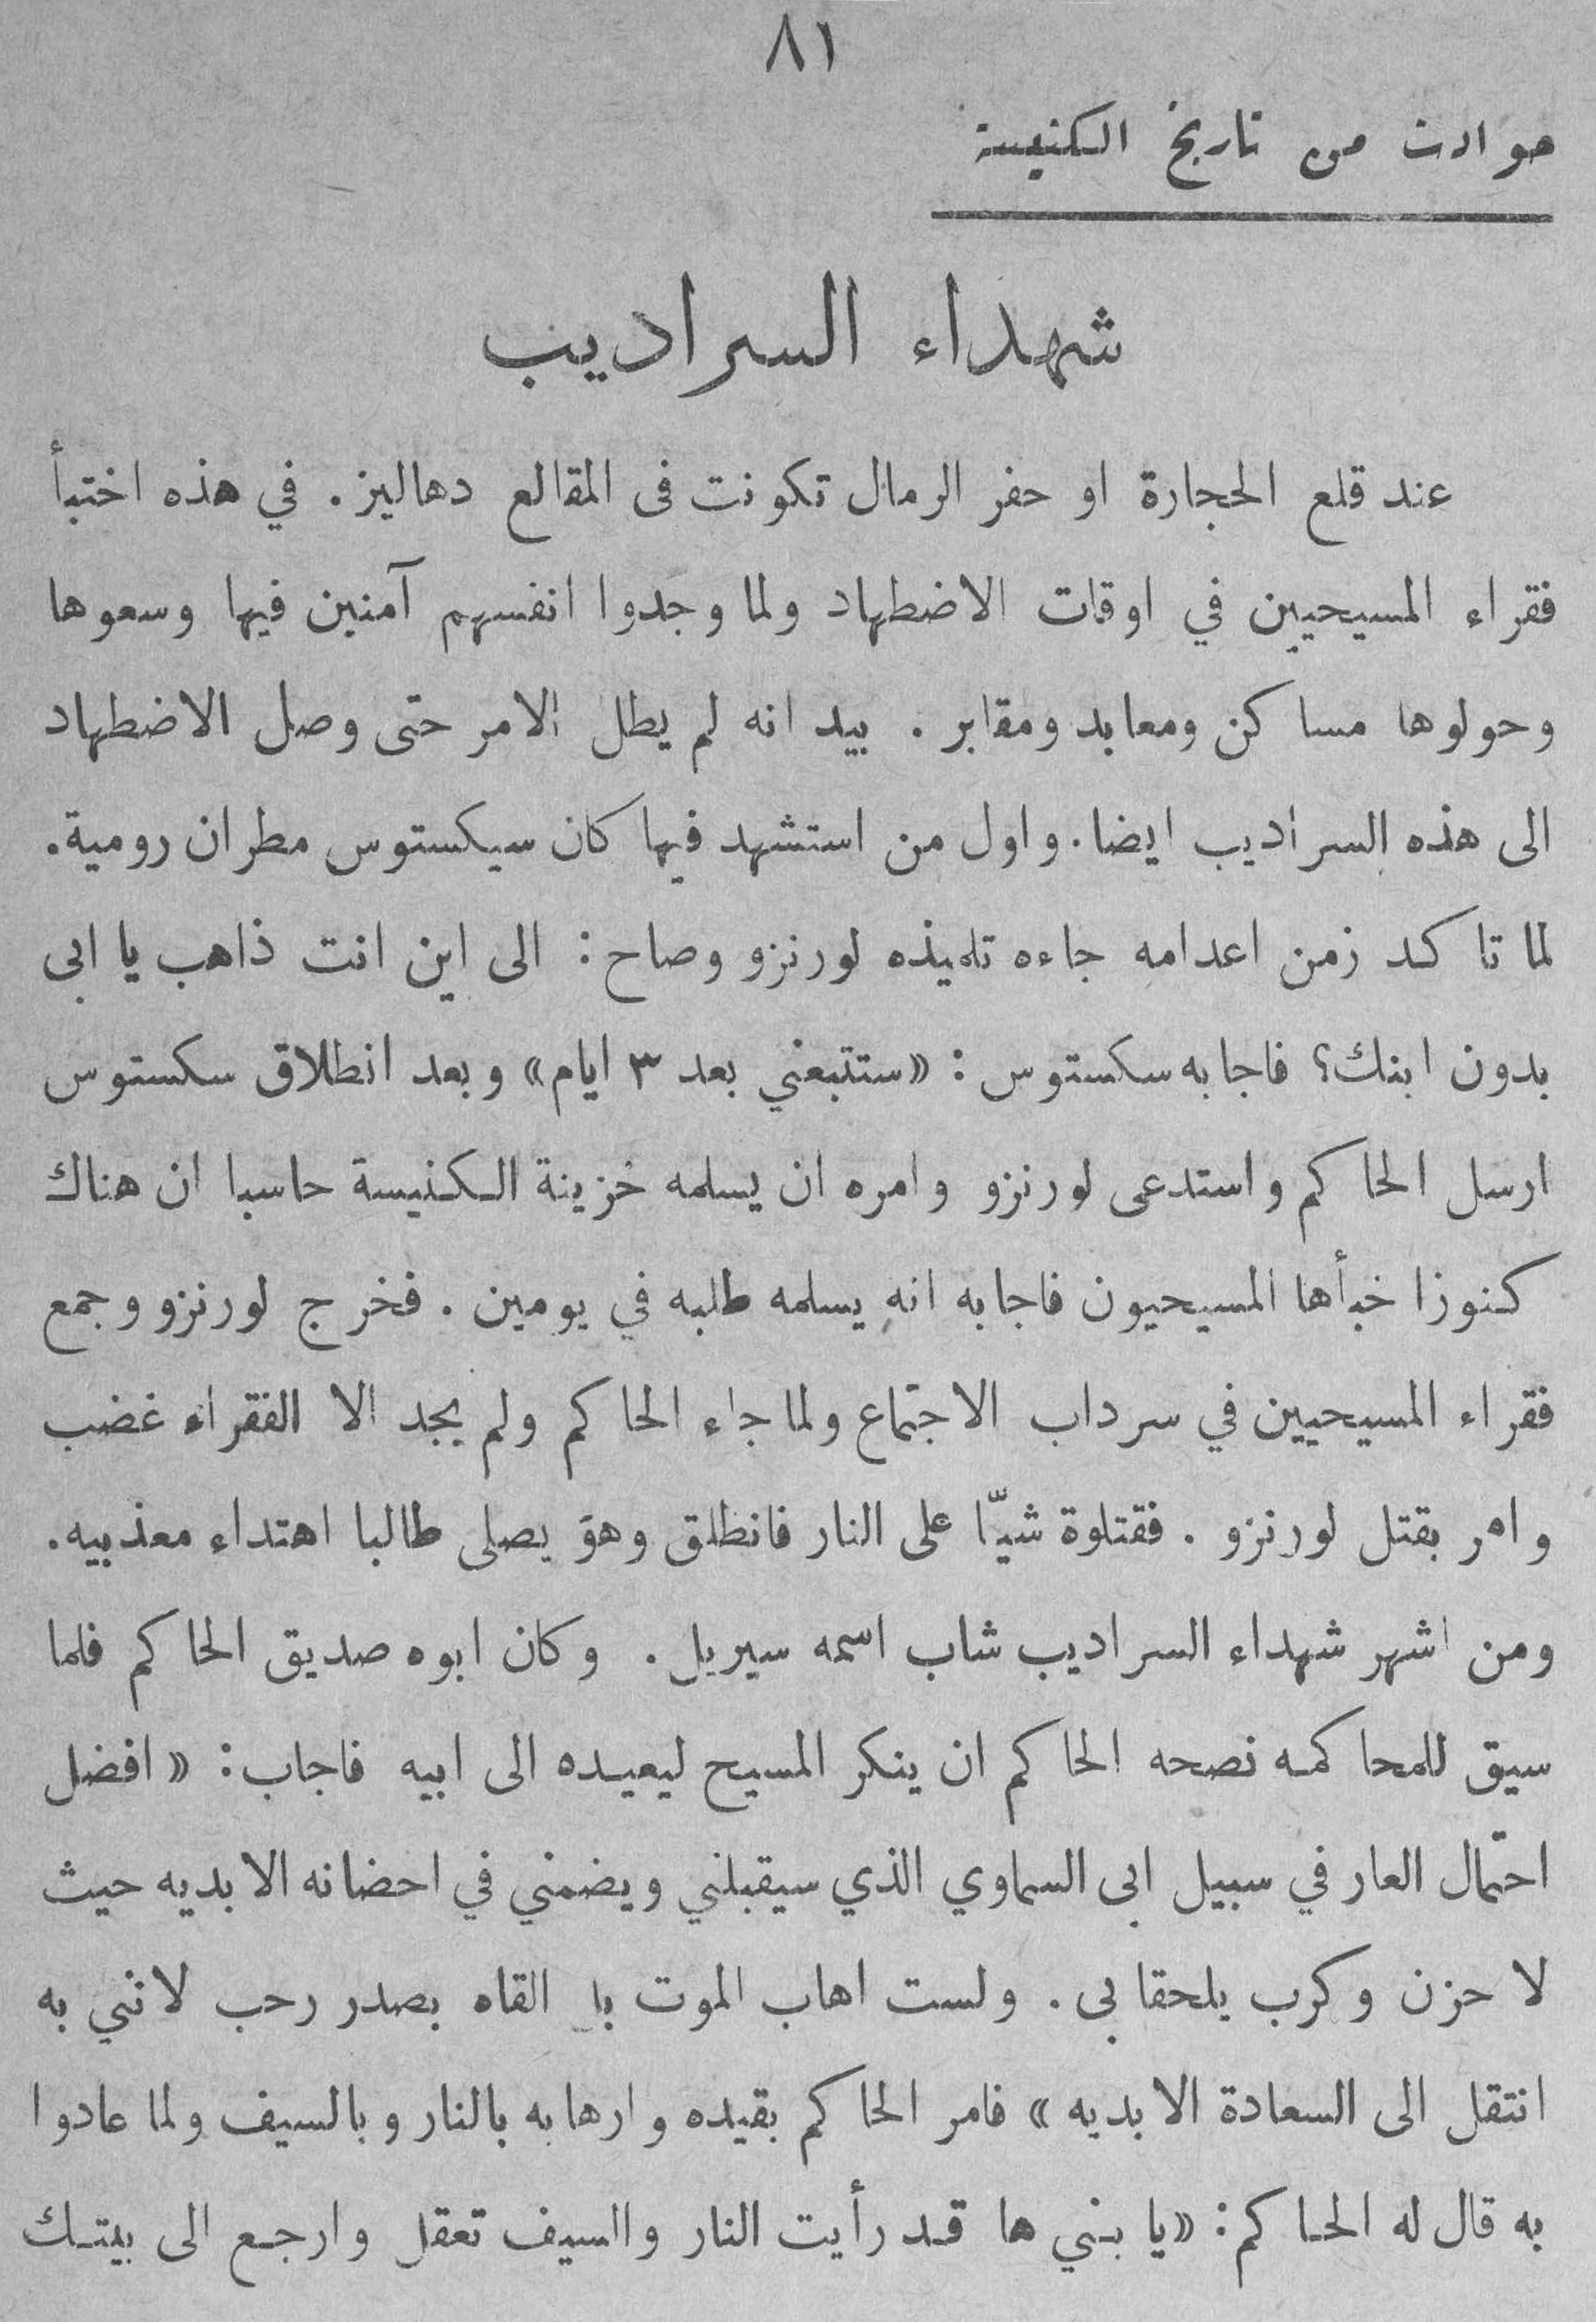 ٨١
حوادث من تاريخ الكنيسة
شهداء السراديب
عند قلع الحجارة او حفر الرمال تكونت فى المقالع دهاليز. في هذه اختبأ
فقراء المسيحيين في اوقات الاضطهاد ولما وجدوا انفسهم آمنين فيها وسعوها
وحولوها مساكن ومعابد ومقابر. بيد انه لم يطل الامر حتى وصل الاضطهاد
الى هذه السراديب ايضا. واول من استشهد فيها كان سيكستوس مطران رومية.
لما تاكد زمن اعدامه جاءه تلميذه لورنزو وصاح: الى اين انت ذاهب يا ابى
بدون ابنك؟ فاجابه سكستوس: «ستتبعني بعد ٣ ايام» وبعد انطلاق سكستوس
ارسل الحاكم واستدعى لورنزو وامره ان يسلمه خزينة الكنيسة حاسبا ان هناك
كنوزا خبأها المسيحيون فاجابه انه يسلمه طلبه في يومين. فخرج لورنزو وجمع
فقراء المسيحيين في سرداب الاجتماع ولما جاء الحاكم ولم يجد الا الفقراء غضب
وامر بقتل لورنزو. فقتلوة شيّا على النار فانطلق وهو يصلى طالبا اهتداء معذبيه.
ومن اشهر شهداء السراديب شاب اسمه سيريل. وكان ابوه صديق الحاكم فلما
سيق للمحاكمه نصحه الحاكم ان ينكر المسيح ليعيده الى ابيه فاجاب: «افضل
احتمال العار في سبيل ابى السماوي الذي سيقبلني ويضمني في احضانه الابديه حيث
لا حزن وكرب يلحقا بى. ولست اهاب الموت با القاه بصدر رحب لانني به
انتقل الى السعادة الابديه» فامر الحاكم بقيده وارهابه بالنار وبالسيف ولما عادوا
به قال له الحاكم: «يا بني ها قد رأيت النار والسيف تعقل وارجع الى بيتك